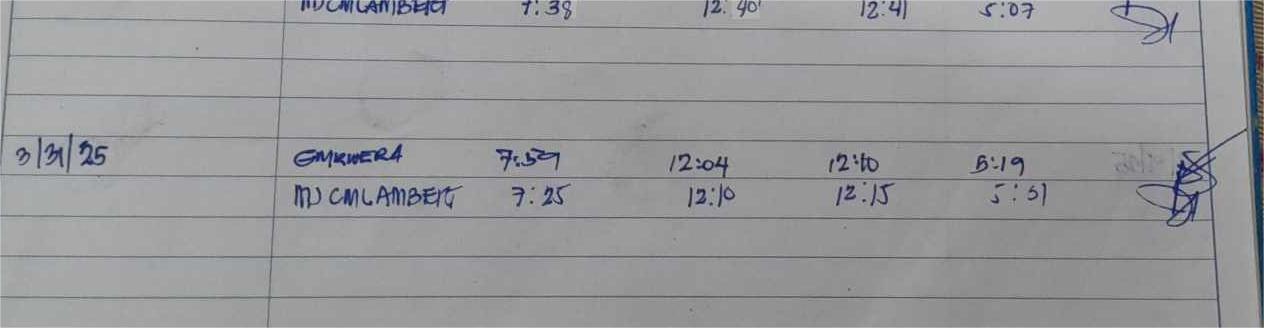 MJCMLAMBERT 7:38 12:40 12:41 5:07
3/31/25 GMRIVERA 7:59 12:04 12:10 5:19
MJ CMLAMBERT 7:25 12:10 12:15 5:31